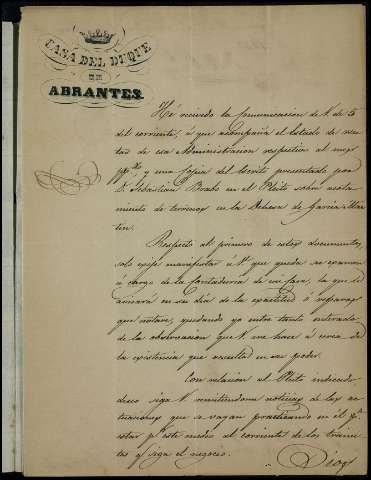 CASA DEL DUQUE
DE
ABRANTES.
Hé recivido la comunicacion de V. de 15
del corriente, á que acompaña el Estado de cuen
tas de esa Administracion respectiva al mes
ppdo, y una Copia del Escrito presentado por
D. Sebastian Brabo en el Pleito sobre acota
miento de terrenos en la Dehesa de Garcia Mar
tin.
Respecto al primero de estos documentos,
solo exije manifestar á V. que queda su examen
á cargo de la Contaduria de mi Casa, la que le
avisará en su dia de la exactitud ó reparos
que notare, quedando yo entre tanto enterado
de la observacion que V. me hace á cerca de
la existencia que resulta en su poder.
Con relacion al Pleito indicado,
deseo siga V. remitiendome noticias de las ac
tuaciones que se vayan practicando en él pa
estar pr este medio al corriente de los trami
tes q siga el negocio.
Dios